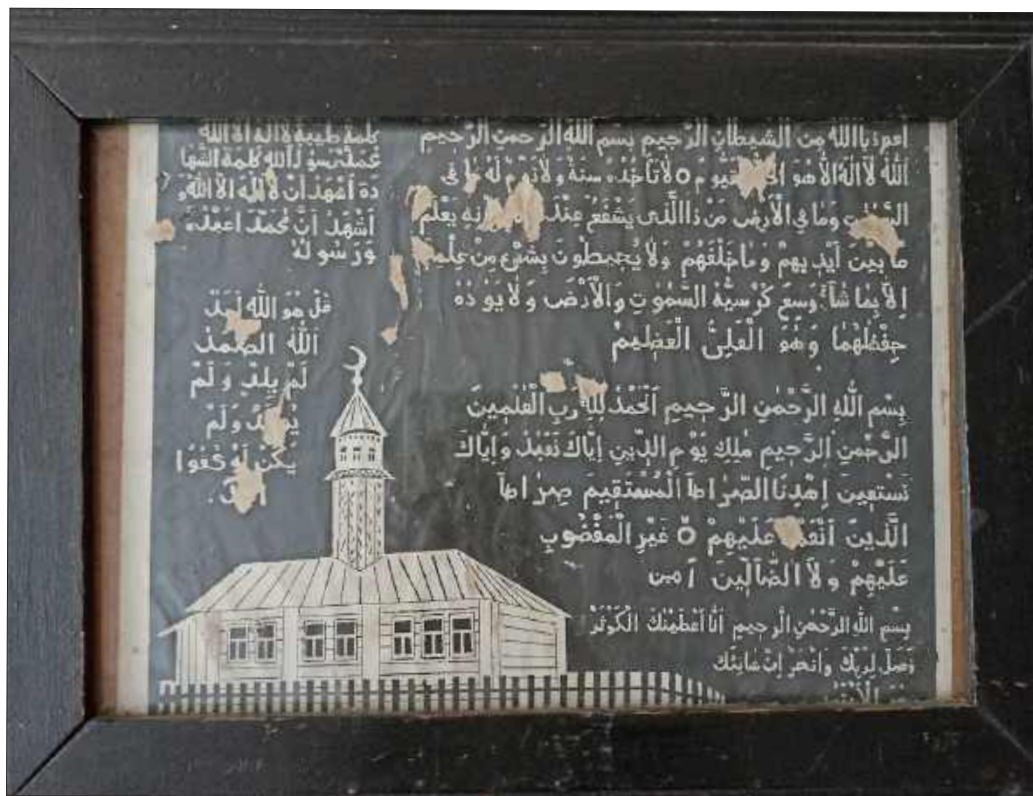 اعوذ باالله من الشيطان الرجيم بسم الله الرحمن الرحيم
الله لا اله الا هو القيوم ۝ لا تأخذه سنة ولا نوم له ما فى
السموات وما في الارض من ذا الذى يشفع عنده يعلم
ما بين ايديهم وما خلفهم ولا يحيطون بشئ من علمه
الا بما شآء وسع كرسيه السموت والارض ولا يؤده
حفظهما وهو العلى العظيم
بسم الله الرحمن الرحيم الحمد لله رب العلمين
الرحمن الرحيم ملك يوم الدين اياك نعبد واياك
نستعين اهدنا الصراط المستقيم صراط
الذين انعمت عليهم ۝ غير المغضوب
عليهم ولا الضآلين آمين
بسم الله الرحمن الرحيم انا اعطينك الكوثر
فصل لربك وانحر ان شانئك
كلمة طيبة لا اله الا الله
محمد رسول الله كلمة الشها
دة اشهد ان لا اله الا الله و
اشهد ان محمد اعبده
ورسوله
قل هو الله احد
الله الصمد
لم يلد ولم
يولد ولم
يكن له كفوا
احد